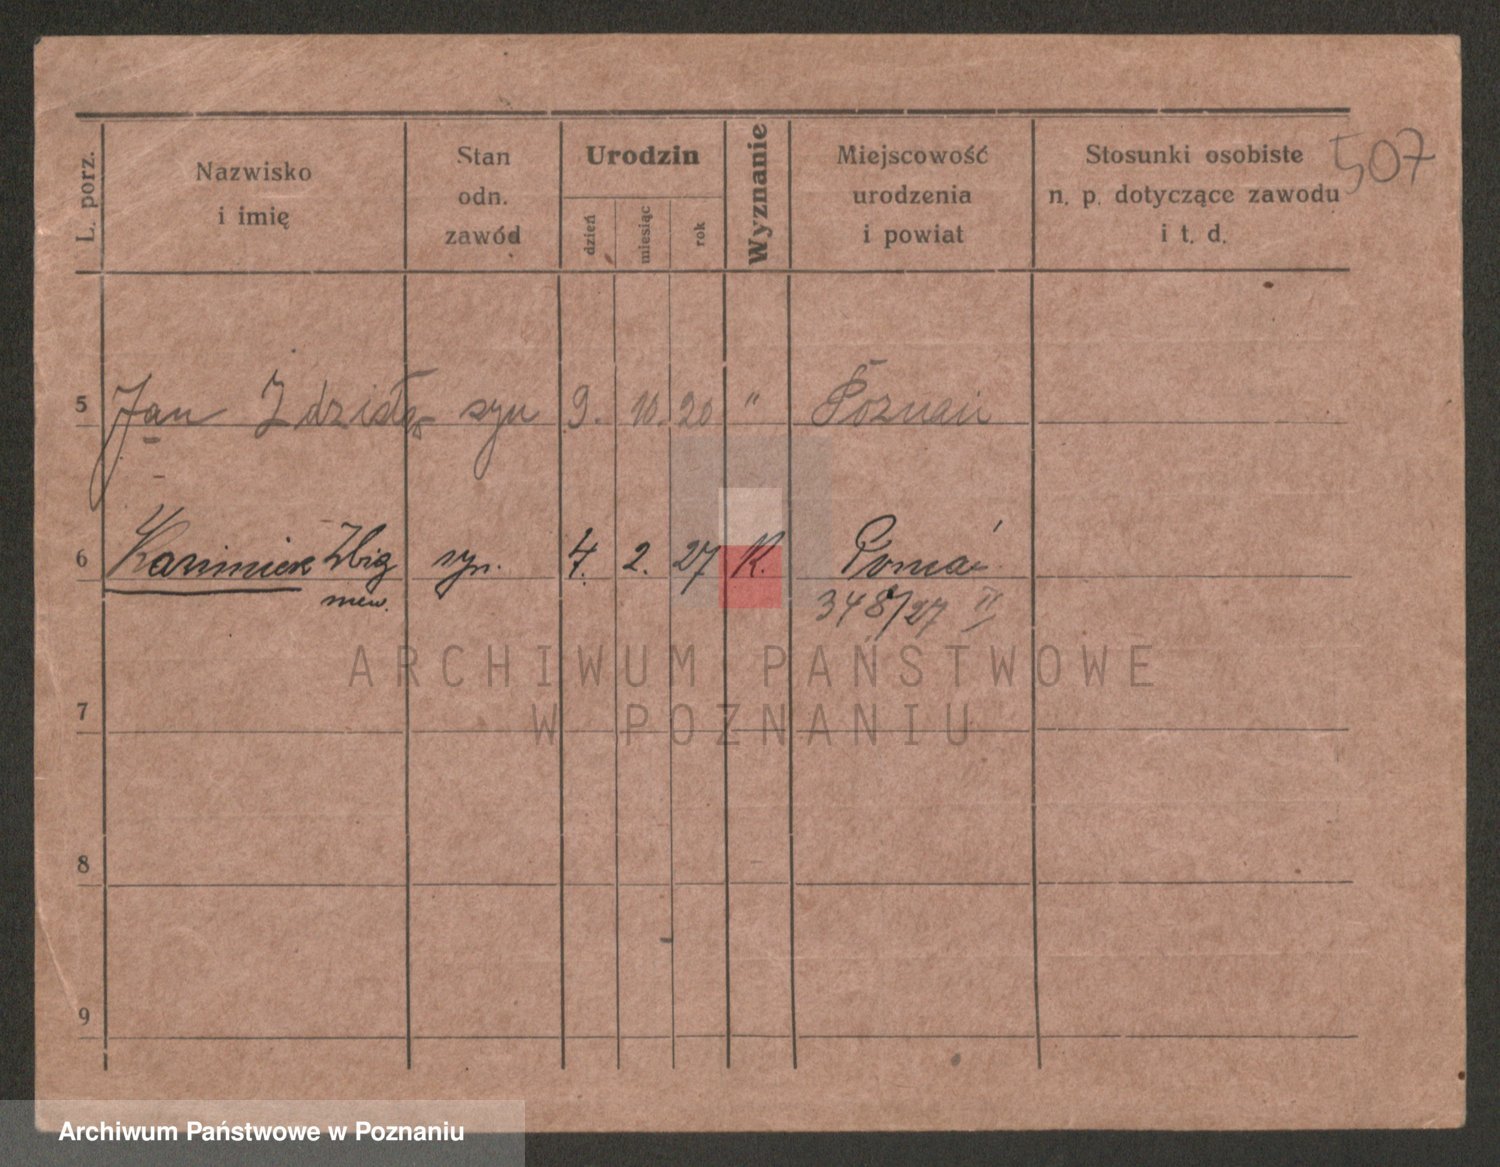 507
L. porz.
Nazwisko
i imię
Stan
odn.
zawód
Urodzin
dzień
miesiąc
rok
Wyznanie
Miejscowość
urodzenia
i powiat
Stosunki osobiste
n. p. dotyczące zawodu
i t. d.
5 Jan Zdzisław syn 9. 10. 20 " Poznań
6 Kazimierz Zbig syn. 4. 2. 27 R. Poznań
niew.
348/27 II
ARCHIWUM PAŃSTWOWE
W POZNANIU
7
8
9
Archiwum Państwowe w Poznaniu